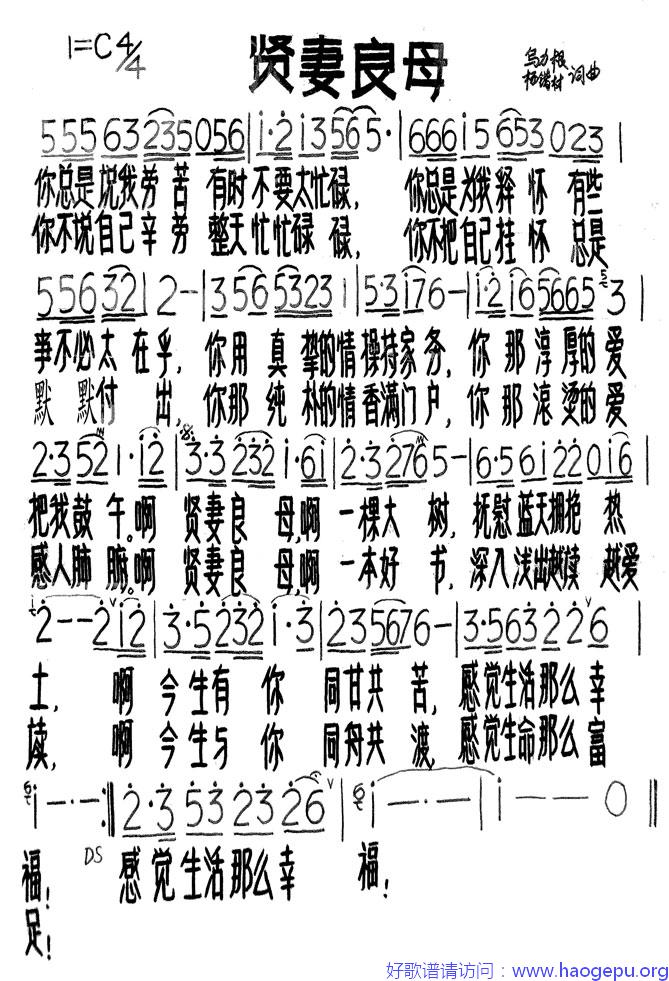 1=C 4/4
贤妻良母
乌力根
杨锴材 词曲
555 63 235 056 | i·2 i3 565· | 666i5 653 023 |
你总是说我劳苦 有时不要太忙碌, 你总是为我释怀 有些
你不说自己辛劳 整天忙忙碌碌, 你不把自己挂怀 总是
556 32 | 2-- | 356 5323 1 | 5·3 i76- | i·2 i65665 3 |
事不必太在乎, 你用真挚的情操持家务, 你那淳厚的爱
默默付出, 你那纯朴的情香满门户, 你那滚烫的爱
2·3 52 1·i2 | 3·3 232 i·6i | 2·3 2765- | 6·56i22 0i6 |
把我鼓午。啊 贤妻良母,啊 一棵大树, 抚慰蓝天拥抱热
感人肺腑。啊 贤妻良母,啊 一本好书, 深入浅出越读越爱
2--2i2 | 3·5 232 i·3 | 23 5676- | 3·563 2 26 |
土, 啊 今生有你 同甘共苦, 感觉生活那么幸
读, 啊 今生与你 同舟共渡, 感觉生命那么富
i-·-· :‖ 2·3 53 23 26 | i-·-· | i--- 0 ‖
福! DS 感觉生活那么幸 福!
足!
好歌谱请访问：www.haogepu.org